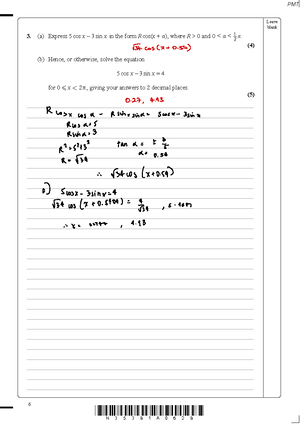 PMT
Leave blank
3. (a) Express 5 cos x – 3 sin x in the form R cos(x + α), where R > 0 and 0 < α < ½π.
√34 cos (x + 0.54)
(4)
(b) Hence, or otherwise, solve the equation
5 cos x – 3 sin x = 4
for 0 ⩽ x < 2π, giving your answers to 2 decimal places.
(5)
0.27, 4.93
R cosx cosα - R sinx sinα = 5cosx - 3sinx
R cosα = 5
R sinα = 3
R² = 5²+3²
R = √34
tan α = 3/5
α = 0.54
∴ √34 cos (x+0.54)
5cosx - 3sinx = 4
√34 cos (x + 0.5404) = 4/√34
∴ x = , 4.93
6
H35381A0628